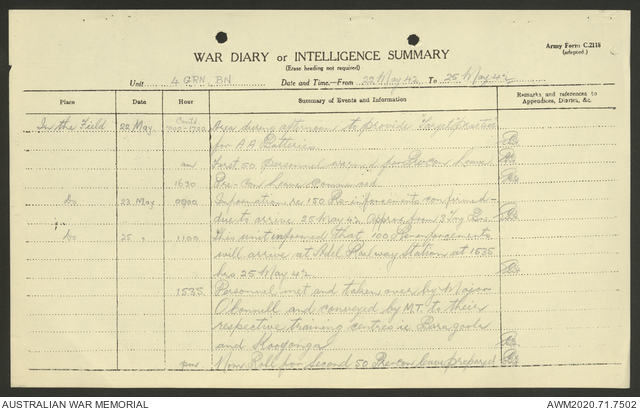 Army Form C.2118
(adapted.)
WAR DIARY or INTELLIGENCE SUMMARY
(Erase heading not required)
Unit 4 GRN. BN Date and Time.—From 22 May 42 To 25 May 42
Place Date Hour Summary of Events and Information Remarks and references to Appendices, Diaries, &c.
In the Field 22 May Contd. Area during afternoon to provide Target practice
for A A Batteries.
am First 50 personnel warned for Pre-con leave.
1630 Pre-Con leave commenced
Do 23 May 0900 Information re 150 Reinforcements confirmed—
due to arrive 25 May 42 approx from 3 Trg Bn.
Do 25 " 1100 This unit informed that 100 Reinforcements
will arrive at Railway Station at 1535
hrs 25 May 42
1535 Personnel met and taken over by Major
O'Connell and conveyed by M.T. to their
respective training centres ie Paragoola
and Kooyonga
pm Nom Roll for Second 50 Pre-con leave prepared
AUSTRALIAN WAR MEMORIAL AWM2020.71.7502